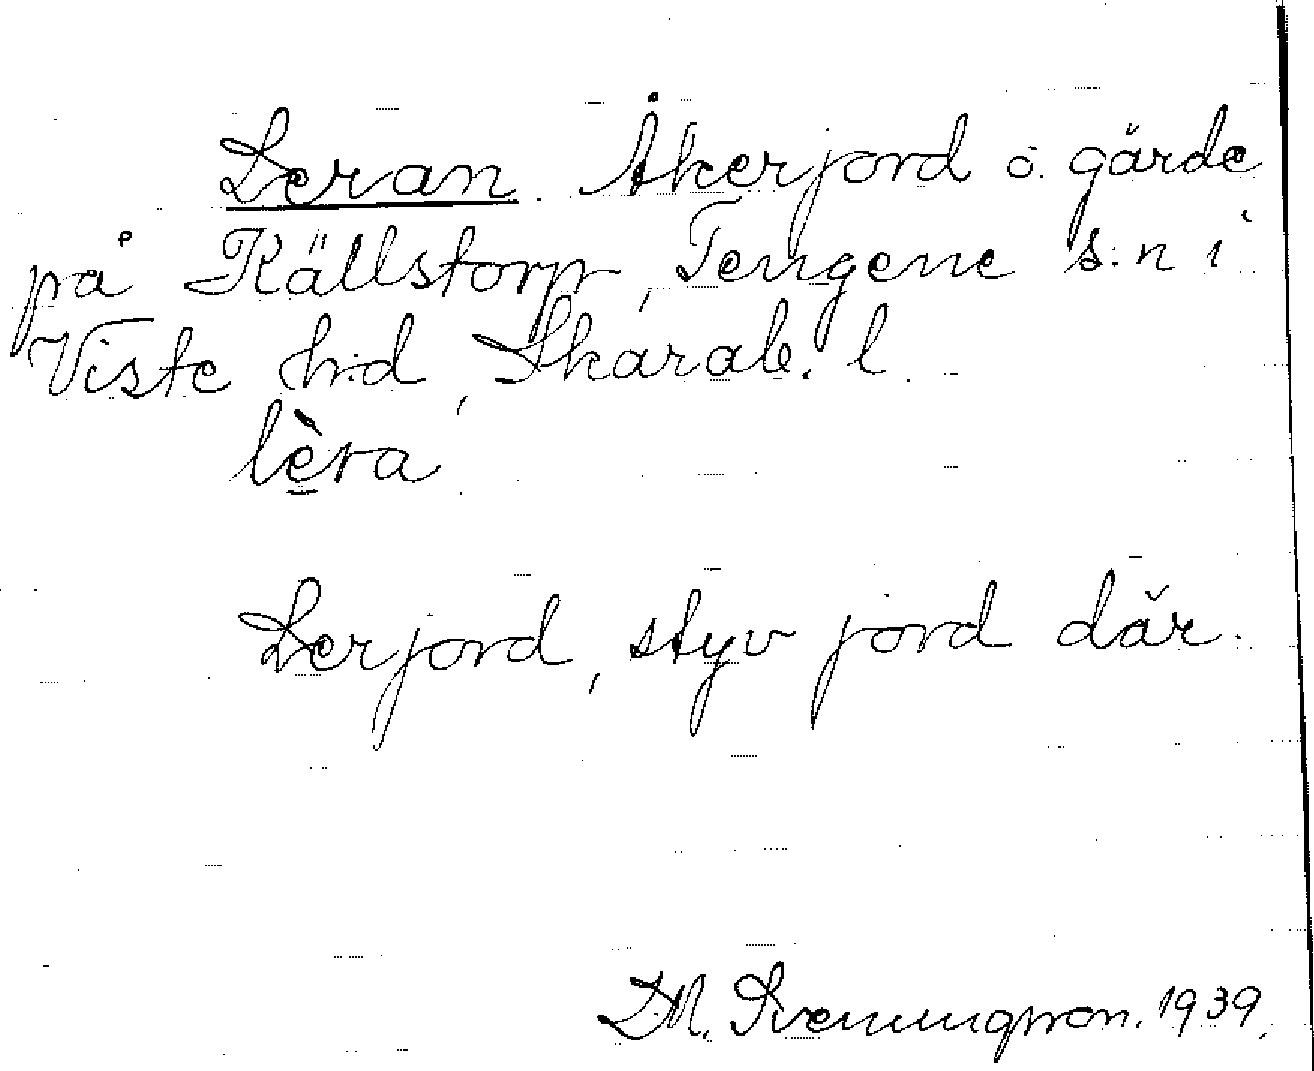 Leran. Åkerjord o. gärde
på Källstorp, Tengene s:n i
Viste h:d, Skarab. l.
lèra
Lerjord, styv jord där.
D.M. Svenungsson. 1939.